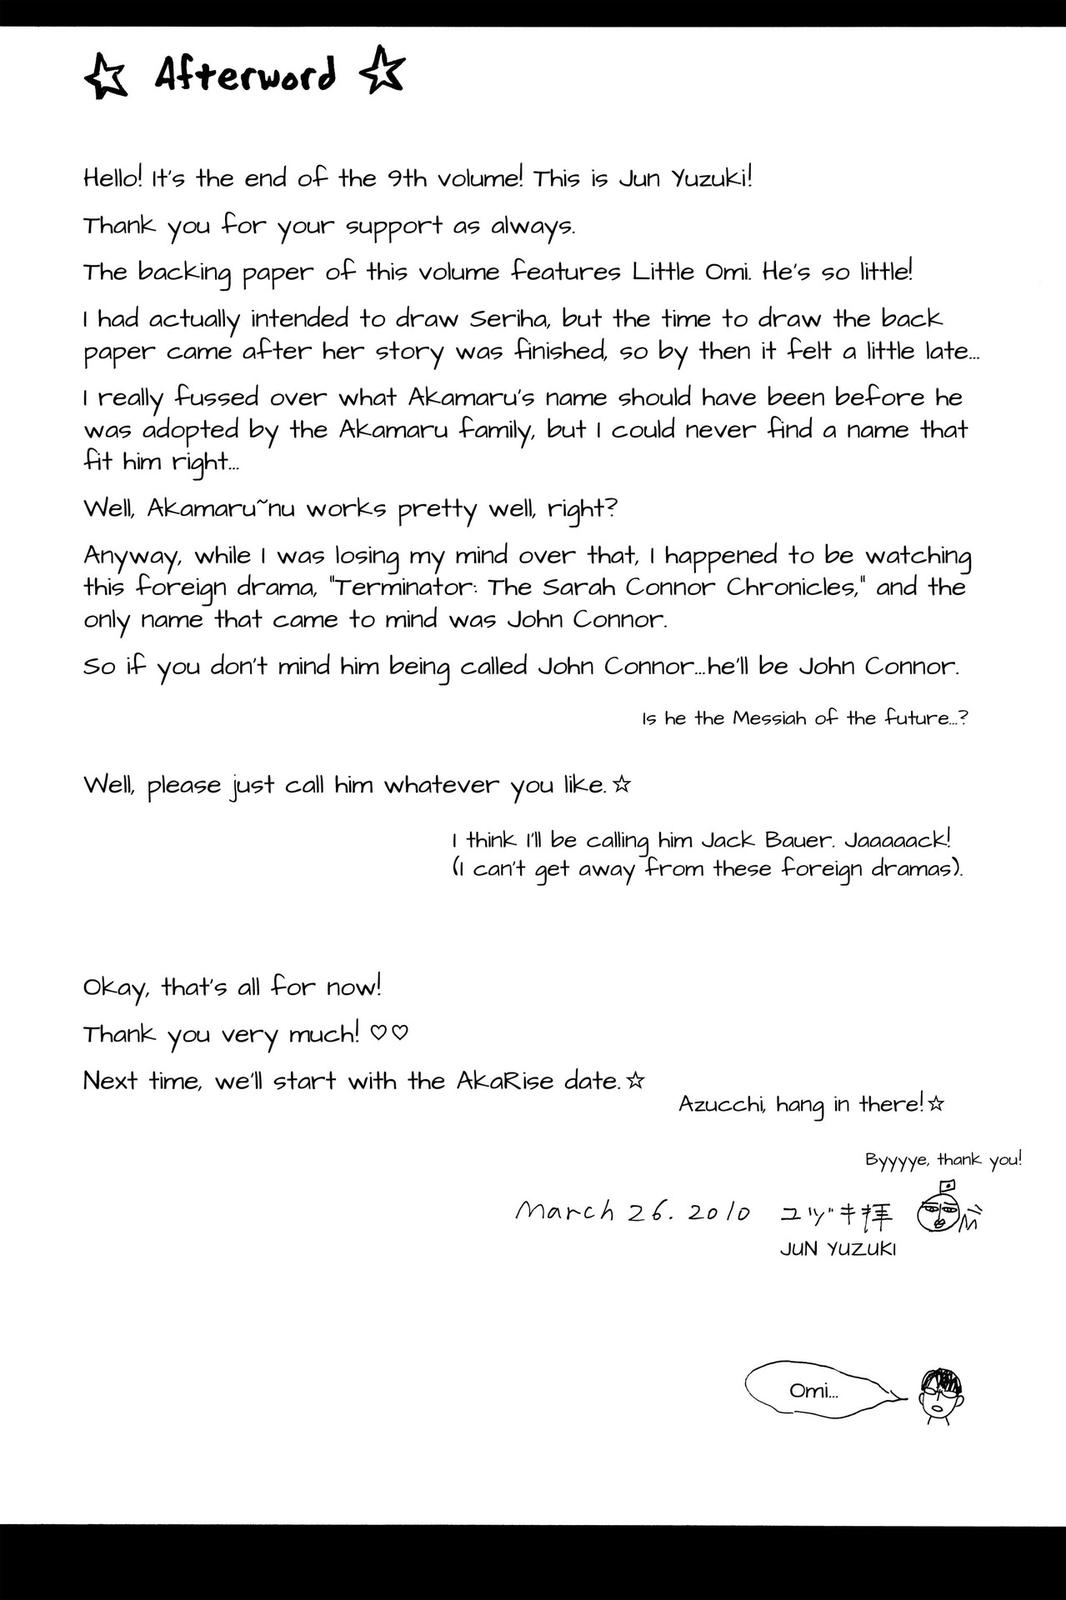 ☆ Afterword ☆
Hello! It's the end of the 9th volume! This is Jun Yuzuki!
Thank you for your support as always.
The backing paper of this volume features Little Omi. He's so little!
I had actually intended to draw Seriha, but the time to draw the back
paper came after her story was finished, so by then it felt a little late...
I really fussed over what Akamaru's name should have been before he
was adopted by the Akamaru family, but I could never find a name that
fit him right...
Well, Akamaru~nu works pretty well, right?
Anyway, while I was losing my mind over that, I happened to be watching
this foreign drama, "Terminator: The Sarah Connor Chronicles," and the
only name that came to mind was John Connor.
So if you don't mind him being called John Connor...he'll be John Connor.
Is he the Messiah of the future...?
Well, please just call him whatever you like.☆
I think I'll be calling him Jack Bauer. Jaaaaack!
(I can't get away from these foreign dramas).
Okay, that's all for now!
Thank you very much! ♡♡
Next time, we'll start with the AkaRise date.☆
Azucchi, hang in there!☆
Byyyye, thank you!
March 26. 2010 ユヅキ拝
JUN YUZUKI
Omi...